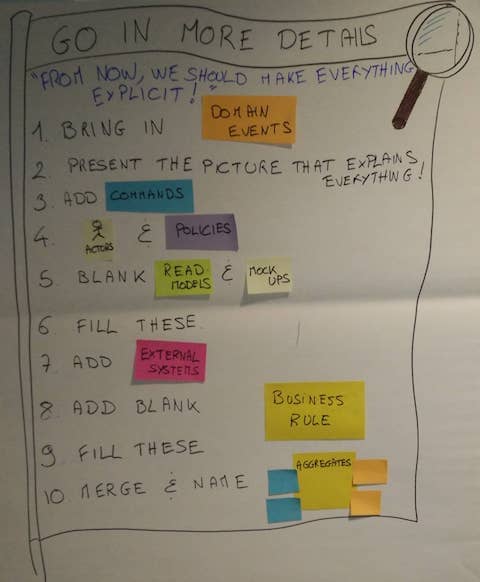 GO IN MORE DETAILS
"FROM NOW, WE SHOULD MAKE EVERYTHING
EXPLICIT!"
1. BRING IN DOMAIN EVENTS
2. PRESENT THE PICTURE THAT EXPLAINS
EVERYTHING!
3. ADD COMMANDS
4. ACTORS & POLICIES
5. BLANK READ MODELS & MOCK UPS
6. FILL THESE.
7. ADD EXTERNAL SYSTEMS
8. ADD BLANK BUSINESS RULE
9. FILL THESE
10. MERGE & NAME AGGREGATES